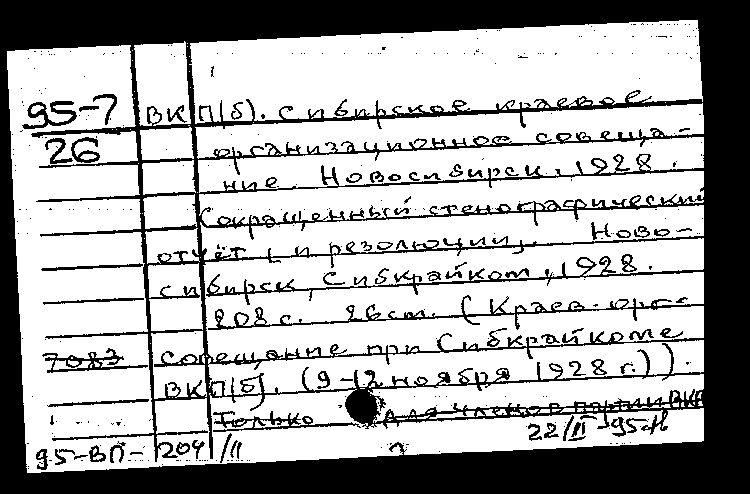 95-7 ВКП(б). Сибирское краевое
26 организационное совеща-
ние. Новосибирск. 1928.
Сокращенный стенографический
отчёт [и резолюции]. Ново-
сибирск, Сибкрайком, 1928.
208 с. 26 cm. (Краев. орг.
7083 совещание при Сибкрайкоме
ВКП(б). (9-12 ноября 1928 г.)).
Только для членов партии ВКП
22/II-95
95-ВП-204/II